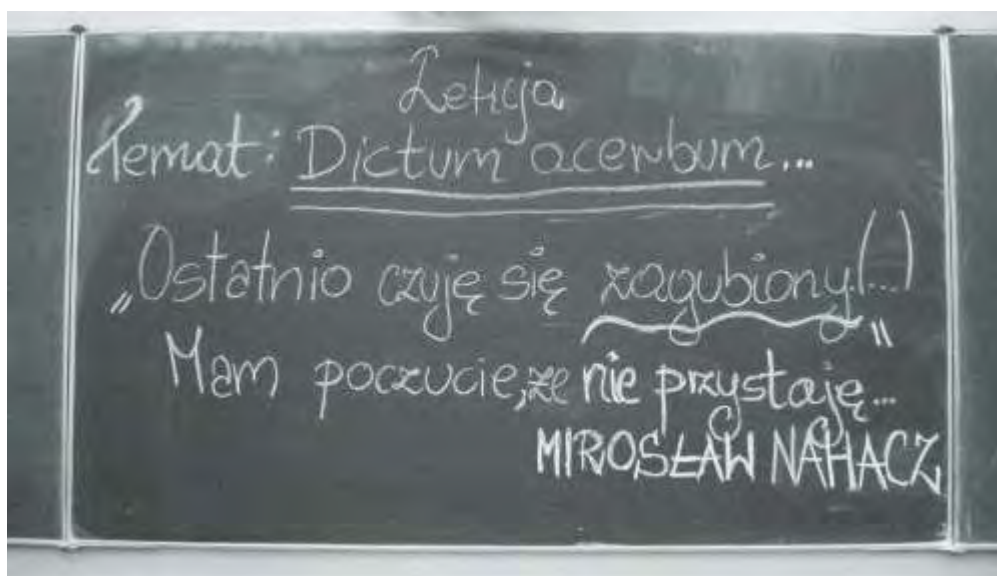 Lekcja
Temat: Dictum acerbum...
„Ostatnio czuję się zagubiony.(...)
Mam poczucie, że nie przystaję..."
MIROSŁAW NAHACZ